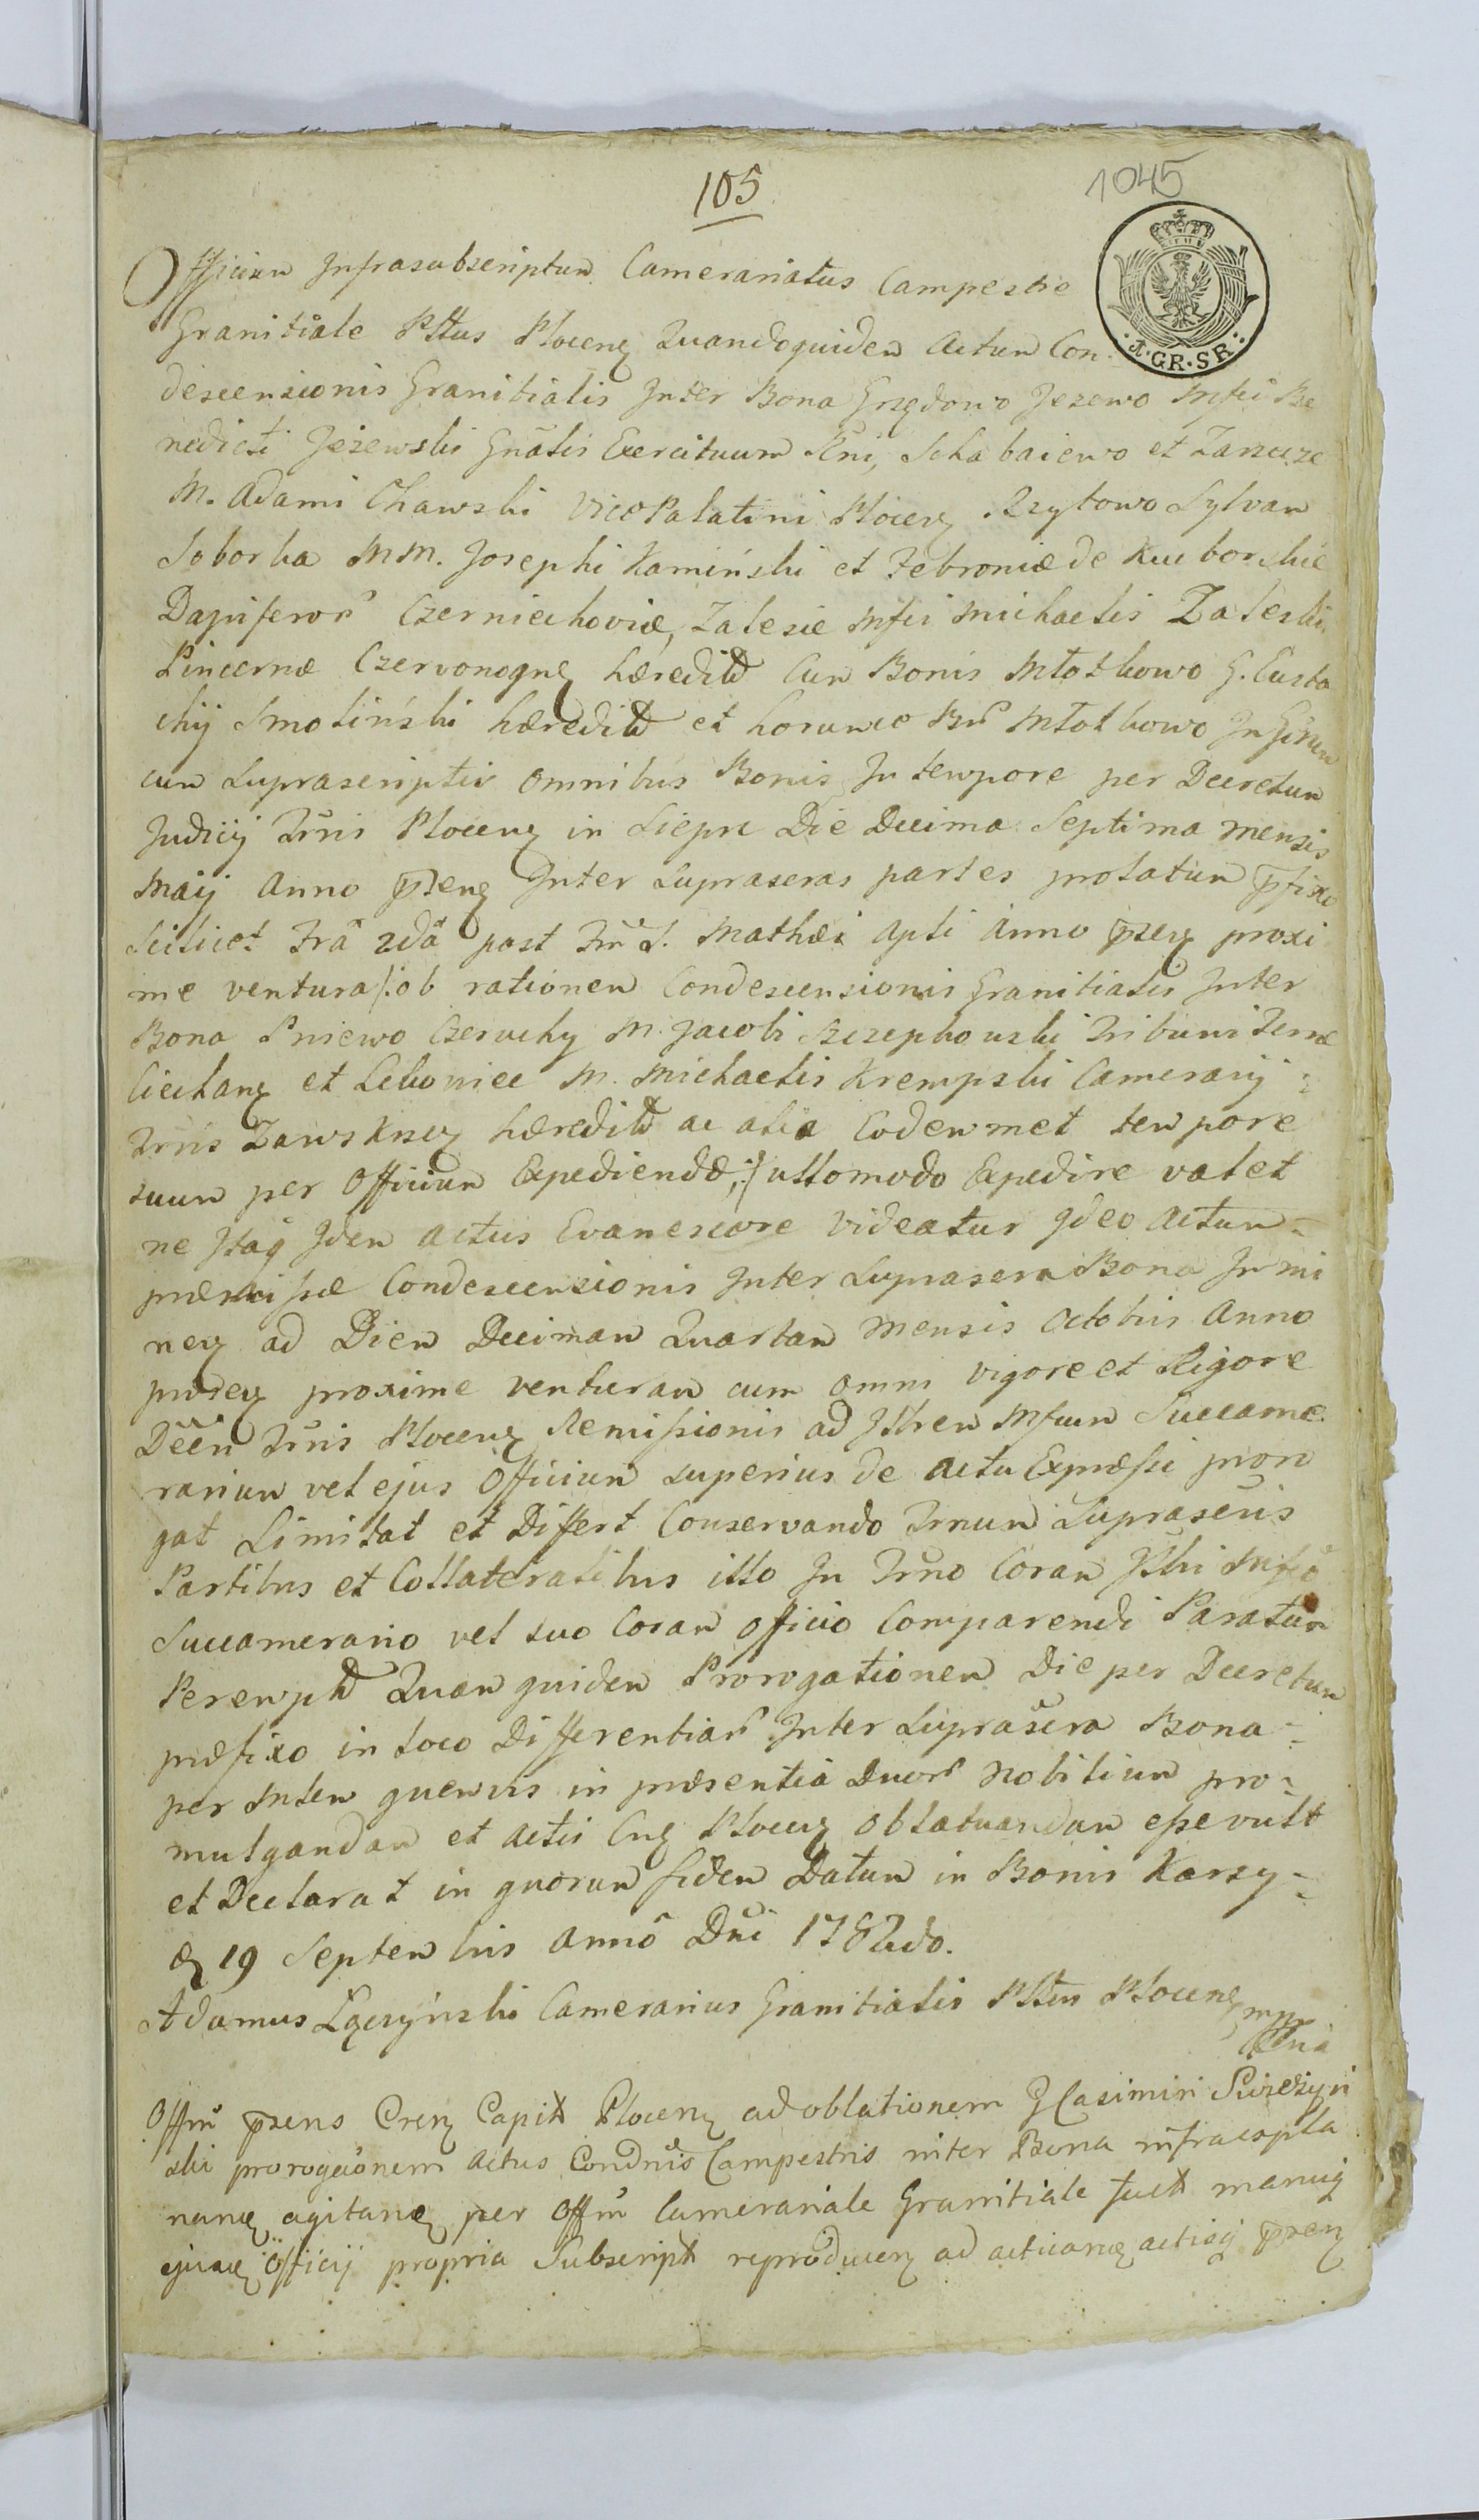 105
1045
1. GR. SR.
Officium Infrascriptum Camerariatus Campestre
Granitiale Pttus Plocen Quandoquidem Actum Con
descensionis Granitialis Inter Bona Grzędowo Jezewo Mfci Be
nedicti Jeżewski Gnãlis Exercituum Scha baiewo et Zarzecze
M. Adami Chawski Vice Palatini Plocen Rzytowo Sylvam
Soborka MM. Josephi Kamiński et Febroniæ de Kuc borskie
Dapiferor Czerniechoviæ, Zalesie Mfci Michaelis Zaleski
Pincernæ Czervonogn hæredit Cum Bonis Młotkowo G. Eusta
chij Smoliński hæredit et horumce Młotkowo
cum Suprascriptis omnibus Bonis In tempore per Decretum
Judicij Trris Plocen in Siepre Die Decima Septima Mensis
Maij Anno p̃sen Inter Suprascras partes prolatum p̃fixo
Scilicet Frã 2dã post S. Mathæi Apli Anno p̃sen proxi
me ventura /: ob rationem Condescensionis Granitialis Inter
Bona Pniewo Czeruchy M. Jacobi Szczepkowski Tribuni Terræ
Ciechan et Lekowice M. Michaelis Krempski Camerarij
Trris Zawskrzen hæredit ac alia Eodemmet tempore
suum per Officium Expediendæ, :/ ullomodo Expedire valet
ne Itaq Idem Actus Evanescere Videatur Ideo Actum
præmissæ Condescensionis Inter Suprascra Bona Immi
nen ad Diem Decimam Quartam Mensis Octobris Anno
præsen proxime venturam cum omni vigore et Rigore
Trris Plocen Remissionis ad Mfcum Succame
rarium vel ejus Officium superius de actu Expressi proro
gat Limitat et Differt Conservando Trnum Suprascris
Partibus et Collateralibus illo In Trno Coram Mfco
Succamerario vel suo Coram Officio Comparendi Paratum
Perempt Quam quidem Prorogationem Die per Decretum
præfixo in loco Differentiar Inter Suprascra Bona
per quemvis in præsentia Duor Nobilium pro
mulgandam et Actis Plocen oblatuandam esse vult
et Declarat in quorum fidem Datum in Bonis Karsy
19 Septembris Anno Dni 1782do.
Adamus Łączyński Camerarius Granitialis Pttus Plocen mp
Offm̃ p̃sens Capit Plocen ad oblationem G Casimiri
ski prorogacionem Actus Condnis Campestris inter Bona infraexpssa
agitan per Offm̃ Camerariale Granitiale manuq
ejusce Officij propria Subscript reproducen ad acticanã actisq p̃sen